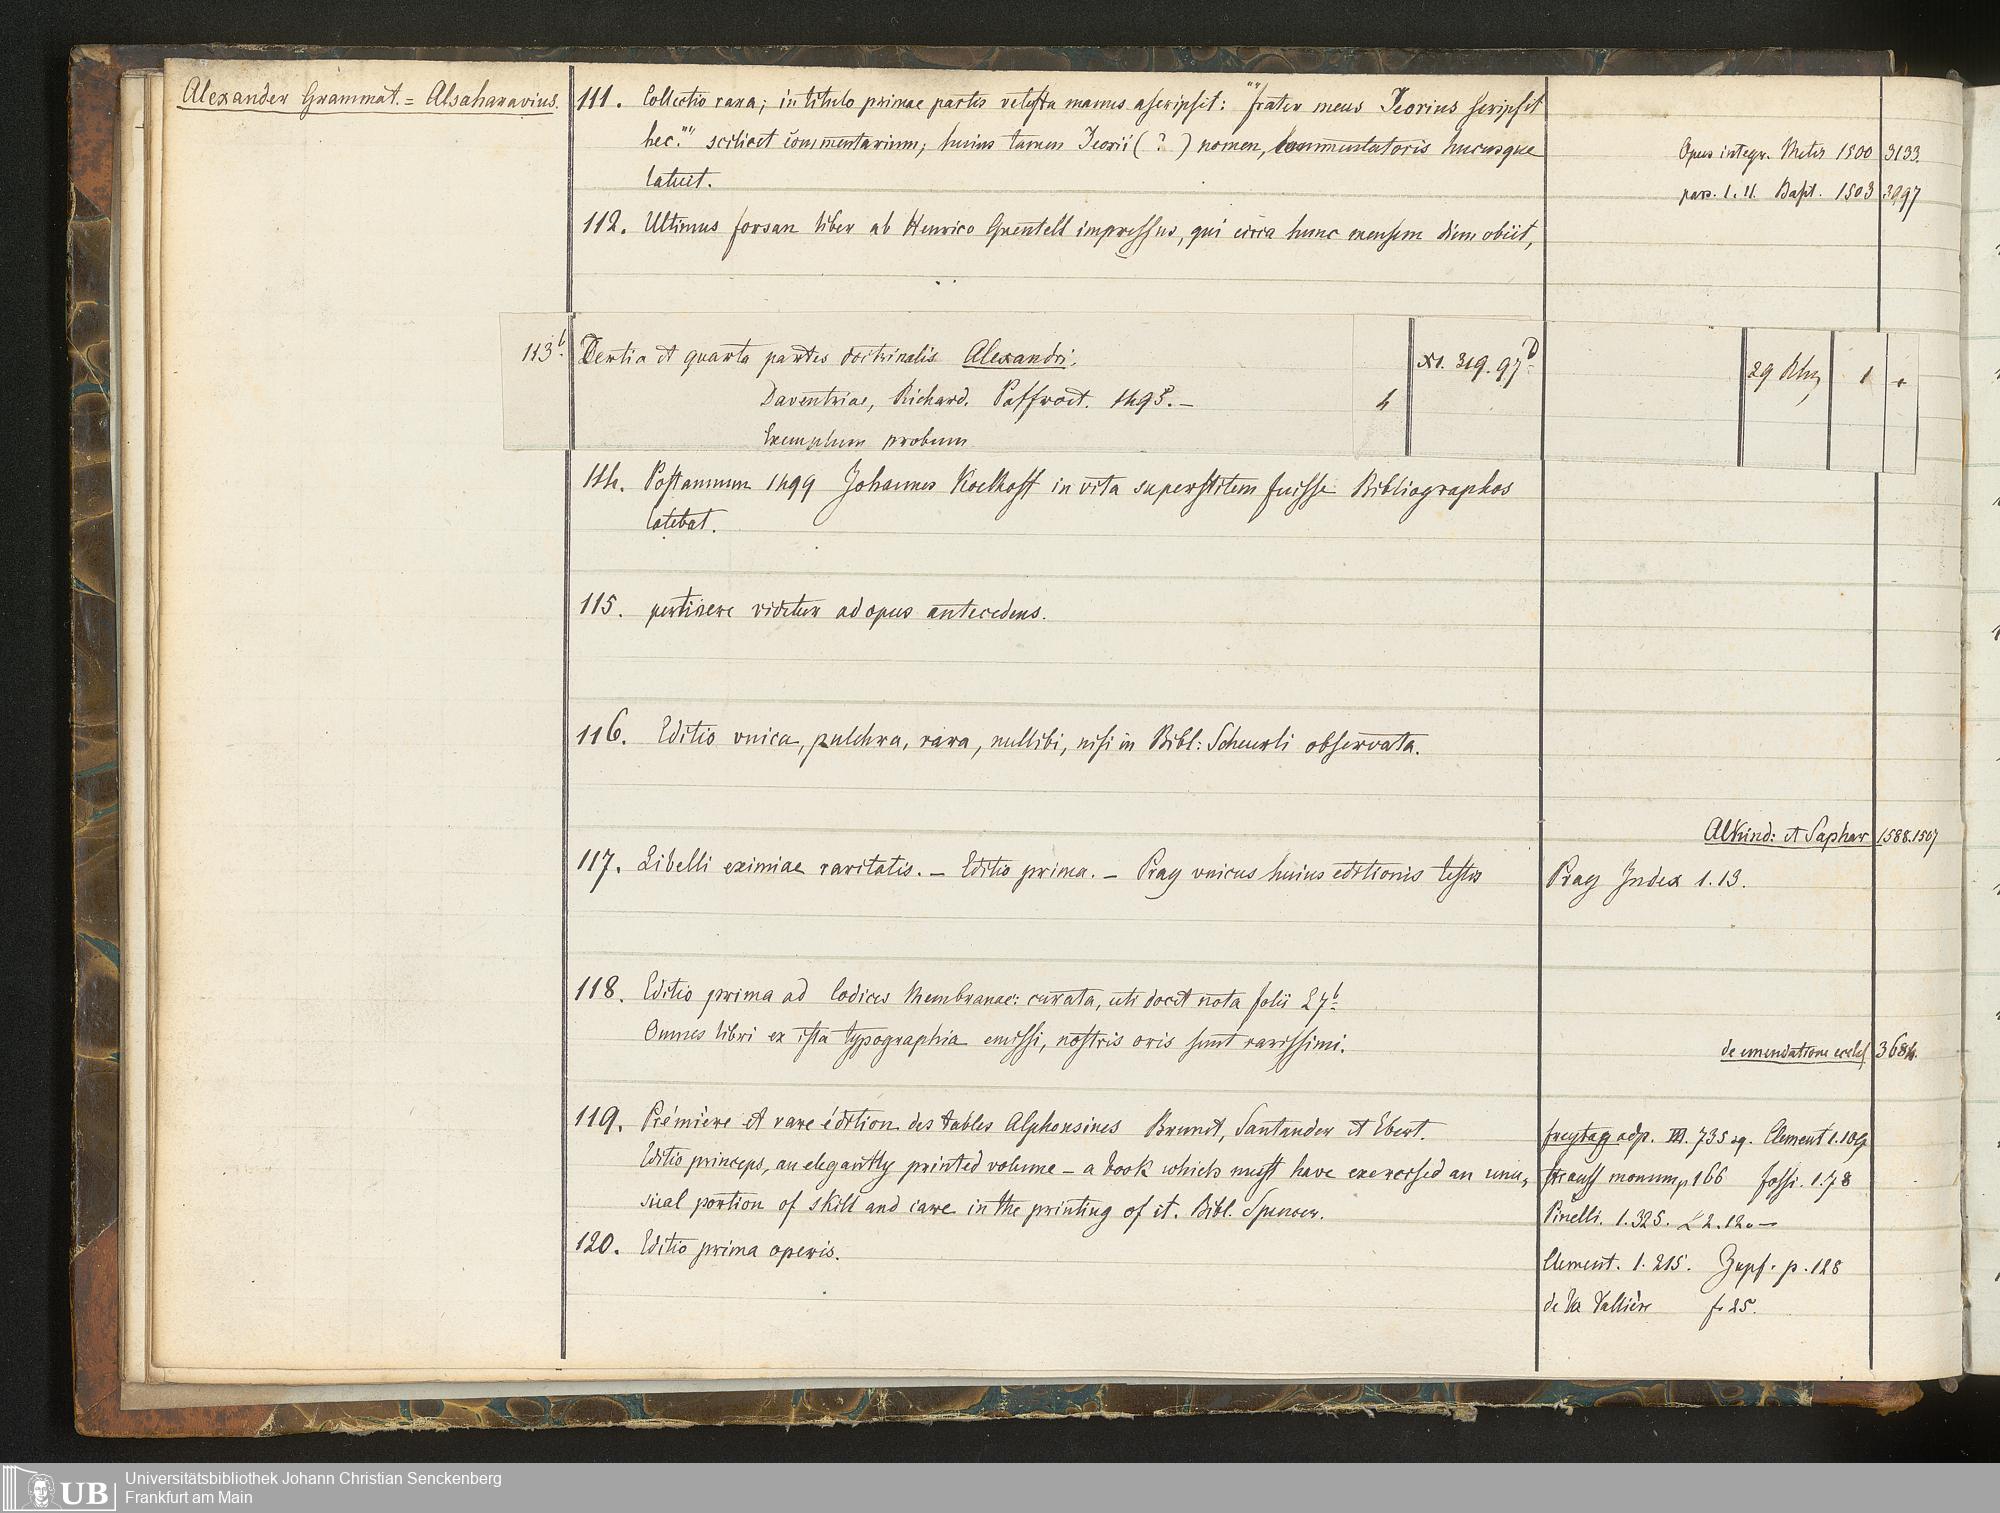 Alexander Grammat. = Alsaharavius.
111. Collectio rara; in titulo primae partis vetusta manus ascripsit: "" frater meus Jeorius scripsit
hec."" scilicet commentarium; huius tamen Jeorii ( ? ) nomen, commentatoris hucusque
latuit.
Opus integr. Metis 1500 3133.
pars. I. II. Basil. 1503 3097
112. Ultimus forsan liber ab Henrico Quentell impressus, qui circa hunc mensem diem obiit,
113b. Tertia et quarta partes doctrinalis Alexandri.
Daventriae, Richard. Paffroet. 1495. —
Exemplum probum
4
XI. 319. 97D
29 Rh
1
+
114. Post annum 1499 Johannes Koelhoff in vita superstitem fuisse Bibliographos
latebat.
115. pertinere videtur ad opus antecedens.
116. Editio unica, pulchra, rara, nullibi, nisi in Bibl: Scheurli observata.
Alkind: et Saphar 1588. 1507
117. Libelli eximiae raritatis. — Editio prima. — Pray unicus huius editionis testis
Pray Index 1. 13.
118. Editio prima ad Codices Membranac: curata, uti docet nota folii 27b
Omnes libri ex ista typographia emissi, nostris oris sunt rarissimi.
de emendatione eccles 3684.
119. Prémière et rare édition des tables Alphonsines Brunet, Santander et Ebert.
Editio princeps, an elegantly printed volume — a book which must have exercised an unu,
sual portion of skill and care in the printing of it. Bibl. Spencer.
freytag adp. III. 735 sq. Clement 1.
Strauss monum p 166 fossi. 1. 78
Pinelli. 1. 325. £ 2. 12. —
120. Editio prima operis.
Clement. 1. 215. Zapf. p. 128
de la Vallière f. 25.
UB
Universitätsbibliothek Johann Christian Senckenberg
Frankfurt am Main